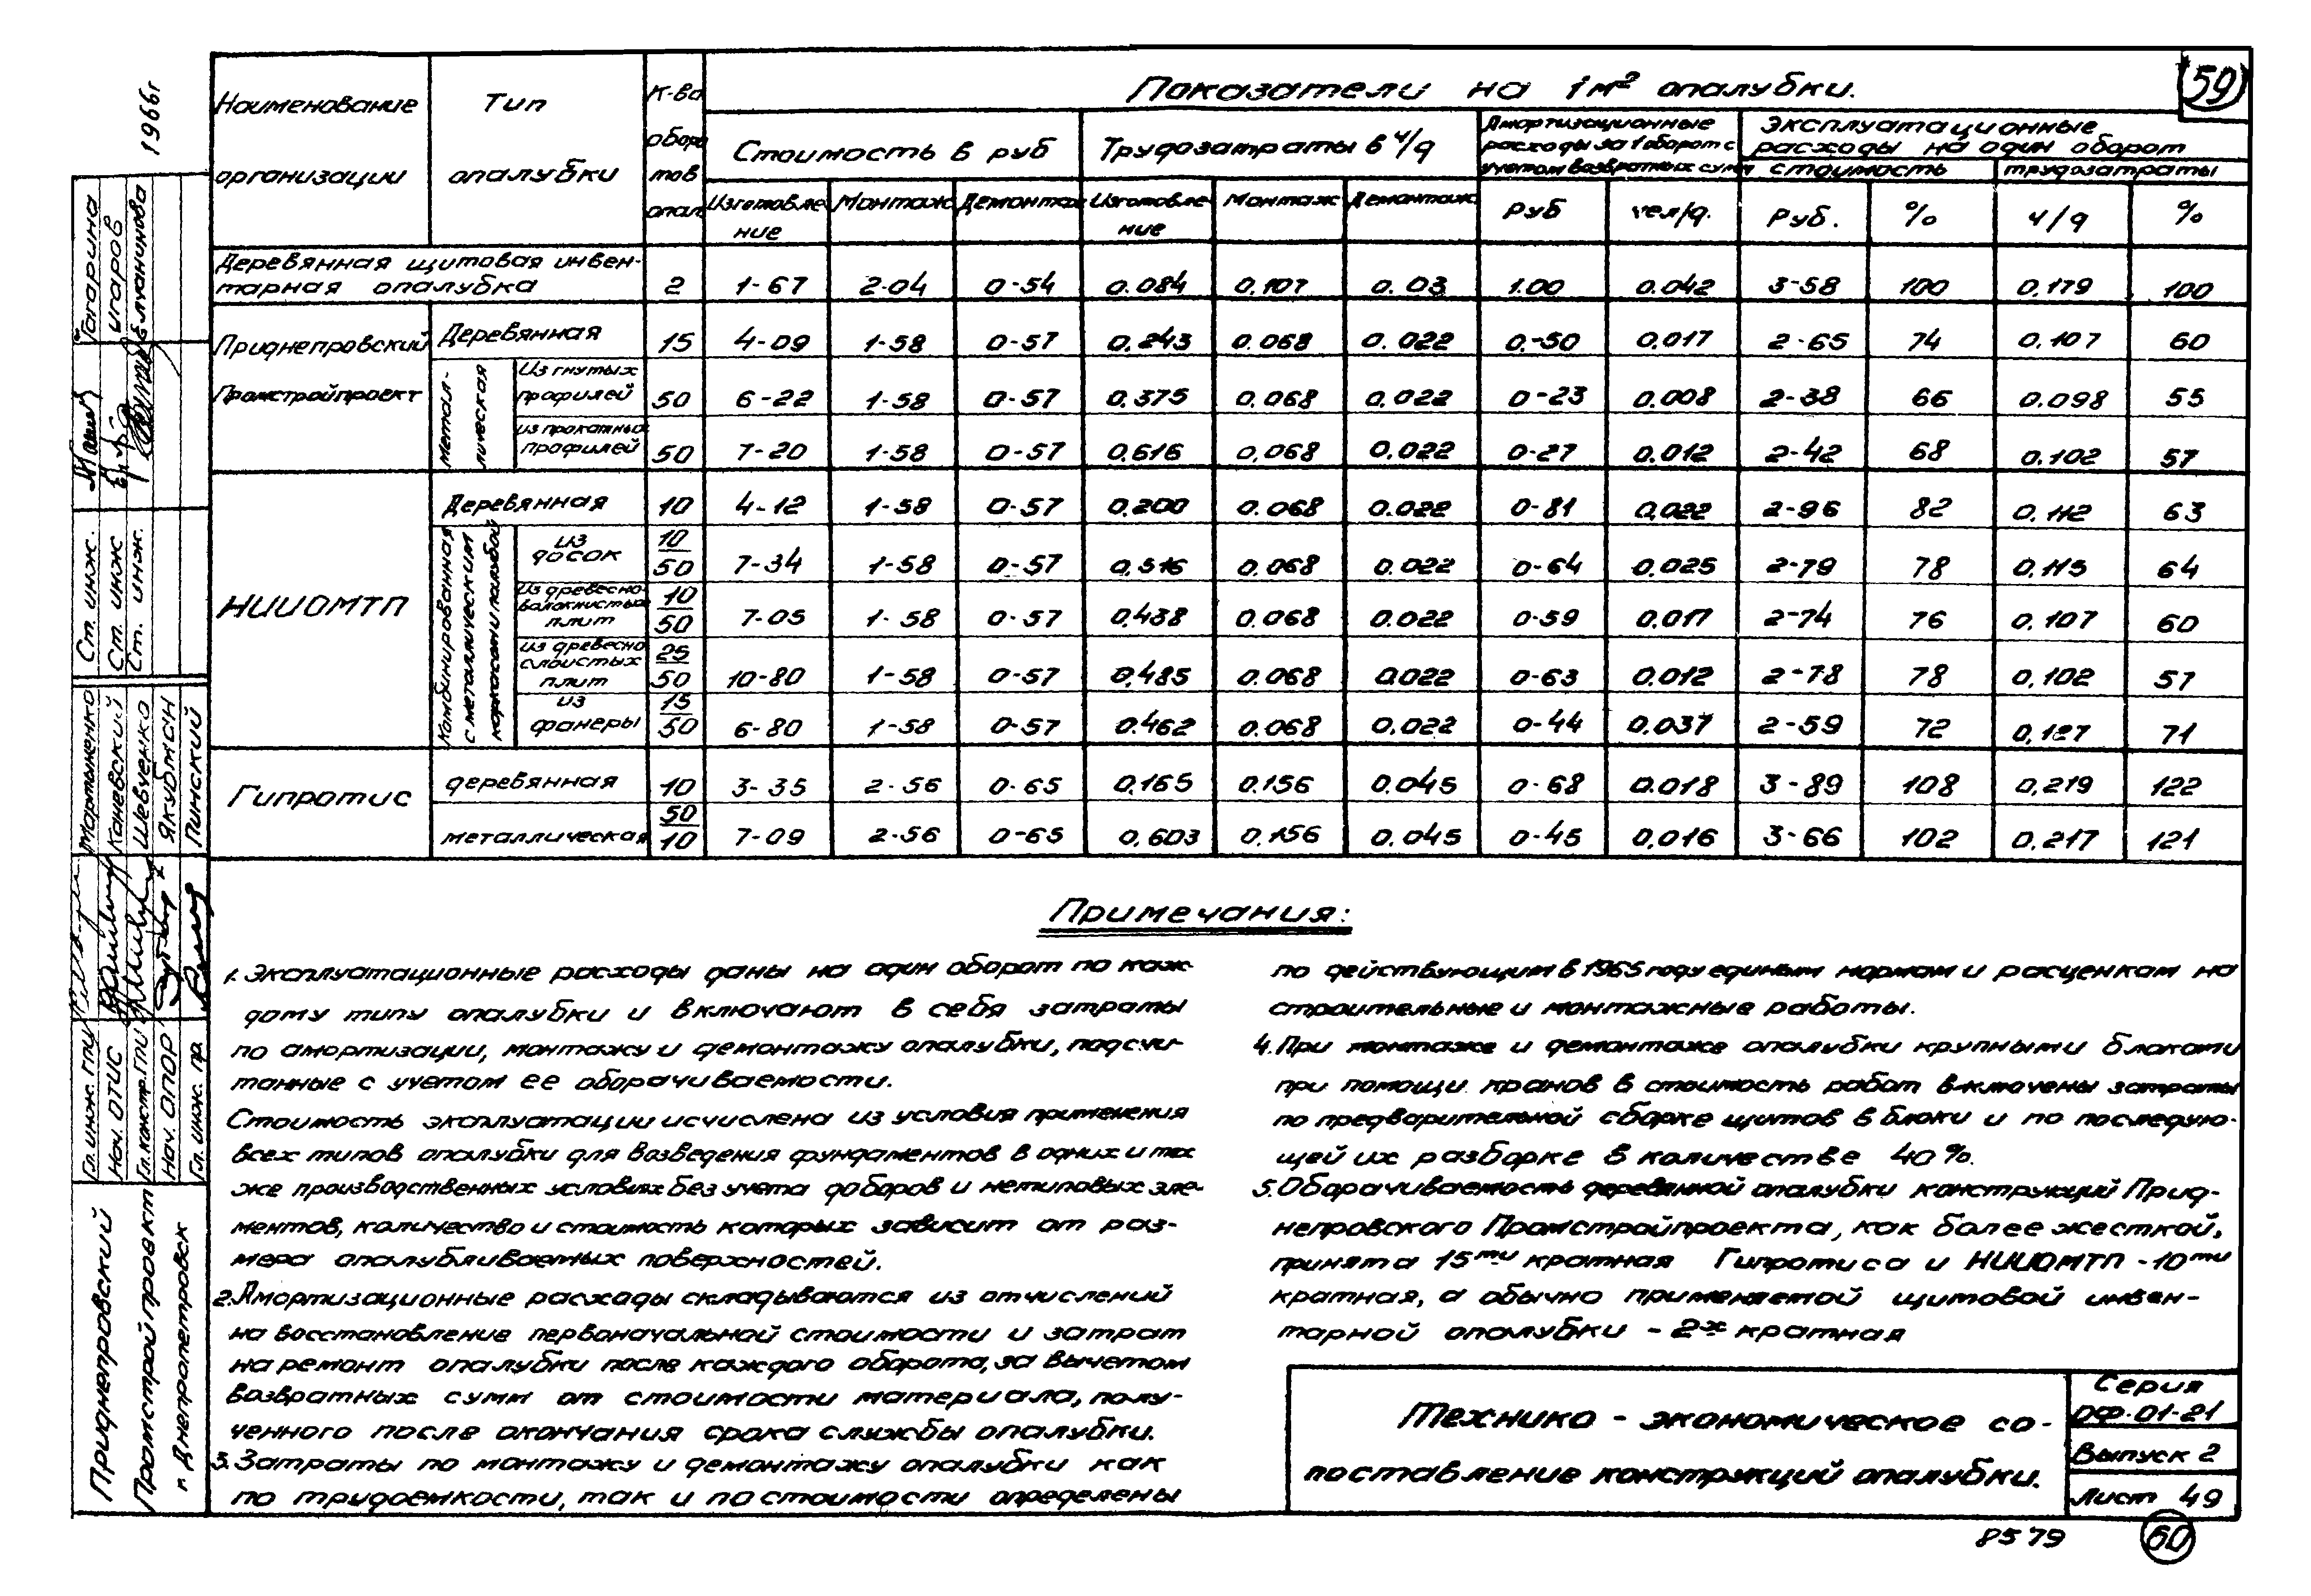 Наименование организации
Тип опалубки
К-во оборотов опал
Показатели на 1м² опалубки.
59
Стоимость в руб
Трудозатраты в ч/д
Амортизационные расходы за 1 оборот с учетом возвратных сумм
Эксплуатационные расходы на один оборот
стоимость
трудозатраты
Изготовление Монтаж Демонтаж Изготовление Монтаж Демонтаж Руб чел/д. Руб. % ч/д %
Деревянная щитовая инвентарная опалубка 2 1-67 2-04 0-54 0.084 0,107 0.03 1.00 0.042 3-58 100 0,179 100
Приднепровский Промстройпроект
Деревянная 15 4-09 1-58 0-57 0,243 0.068 0.022 0-50 0,017 2-65 74 0.107 60
Металлическая
Из гнутых профилей 50 6-22 1-58 0-57 0,375 0,068 0,022 0-23 0.008 2-38 66 0.098 55
из прокатных профилей 50 7-20 1-58 0-57 0,616 0,068 0,022 0-27 0.012 2-42 68 0.102 57
НИИОМТП
Деревянная 10 4-12 1-58 0-57 0,200 0.068 0.022 0-81 0,022 2-96 82 0,112 63
Комбинированная с металлическим каркасом и палубой
из досок 10/50 7-34 1-58 0-57 0,516 0.068 0.022 0-64 0.025 2-79 78 0,115 64
Из древесно волокнистых плит 10/50 7-05 1-58 0-57 0,438 0.068 0.022 0-59 0,017 2-74 76 0.107 60
из древесно слоистых плит 25/50 10-80 1-58 0-57 0,485 0.068 0.022 0-63 0.012 2-78 78 0,102 57
из фанеры 15/50 6-80 1-58 0-57 0.462 0.068 0.022 0-44 0.037 2-59 72 0,127 71
Гипротис
деревянная 10 3-35 2-56 0-65 0,165 0.156 0.045 0-68 0.018 3-89 108 0,219 122
металлическая 50/10 7-09 2-56 0-65 0,603 0,156 0.045 0-45 0,016 3-66 102 0.217 121
Примечания:
1. Эксплуатационные расходы даны на один оборот по каж-
дому типу опалубки и включают в себя затраты
по амортизации, монтажу и демонтажу опалубки, подсчи-
танные с учетом ее оборачиваемости.
Стоимость эксплуатации исчислена из условия применения
всех типов опалубки для возведения фундаментов в одних и тех
же производственных условиях без учета доборов и нетиповых эле-
ментов, количество и стоимость которых зависит от раз-
мера опалубливаемых поверхностей.
2. Амортизационные расходы складываются из отчислений
на восстановление первоначальной стоимости и затрат
на ремонт опалубки после каждого оборота, за вычетом
возвратных сумм от стоимости материала, полу-
ченного после окончания срока службы опалубки.
3. Затраты по монтажу и демонтажу опалубки как
по трудоемкости, так и по стоимости определены
по действующим в 1965 году единым нормам и расценкам на
строительные и монтажные работы.
4. При монтаже и демонтаже опалубки крупными блоками
при помощи кранов в стоимость работ включены затраты
по предварительной сборке щитов в блоки и по последую-
щей их разборке в количестве 40%.
5. Оборачиваемость деревянной опалубки конструкций Прид-
непровского Промстройпроекта, как более жесткой,
принята 15ти кратная Гипротиса и НИИОМТП - 10ти
кратная, а обычно применяемой щитовой инвен-
тарной опалубки - 2х кратная
Технико - экономическое со-
поставление конструкций опалубки.
Серия
ОФ-01-21
Выпуск 2
Лист 49
8579
60
1966г
Гагарина
Ст. инж.
Ст. инж
Ст. инж.
Мартыненко
Каневский
Шевченко
Якубман
Пинский
Гл. инж. ПТИ
Нач. ОТИС
Гл. констр. ПТИ
Нач. ОПОР
Гл. инж. пр.
Приднепровский
Промстройпроект
г. Днепропетровск